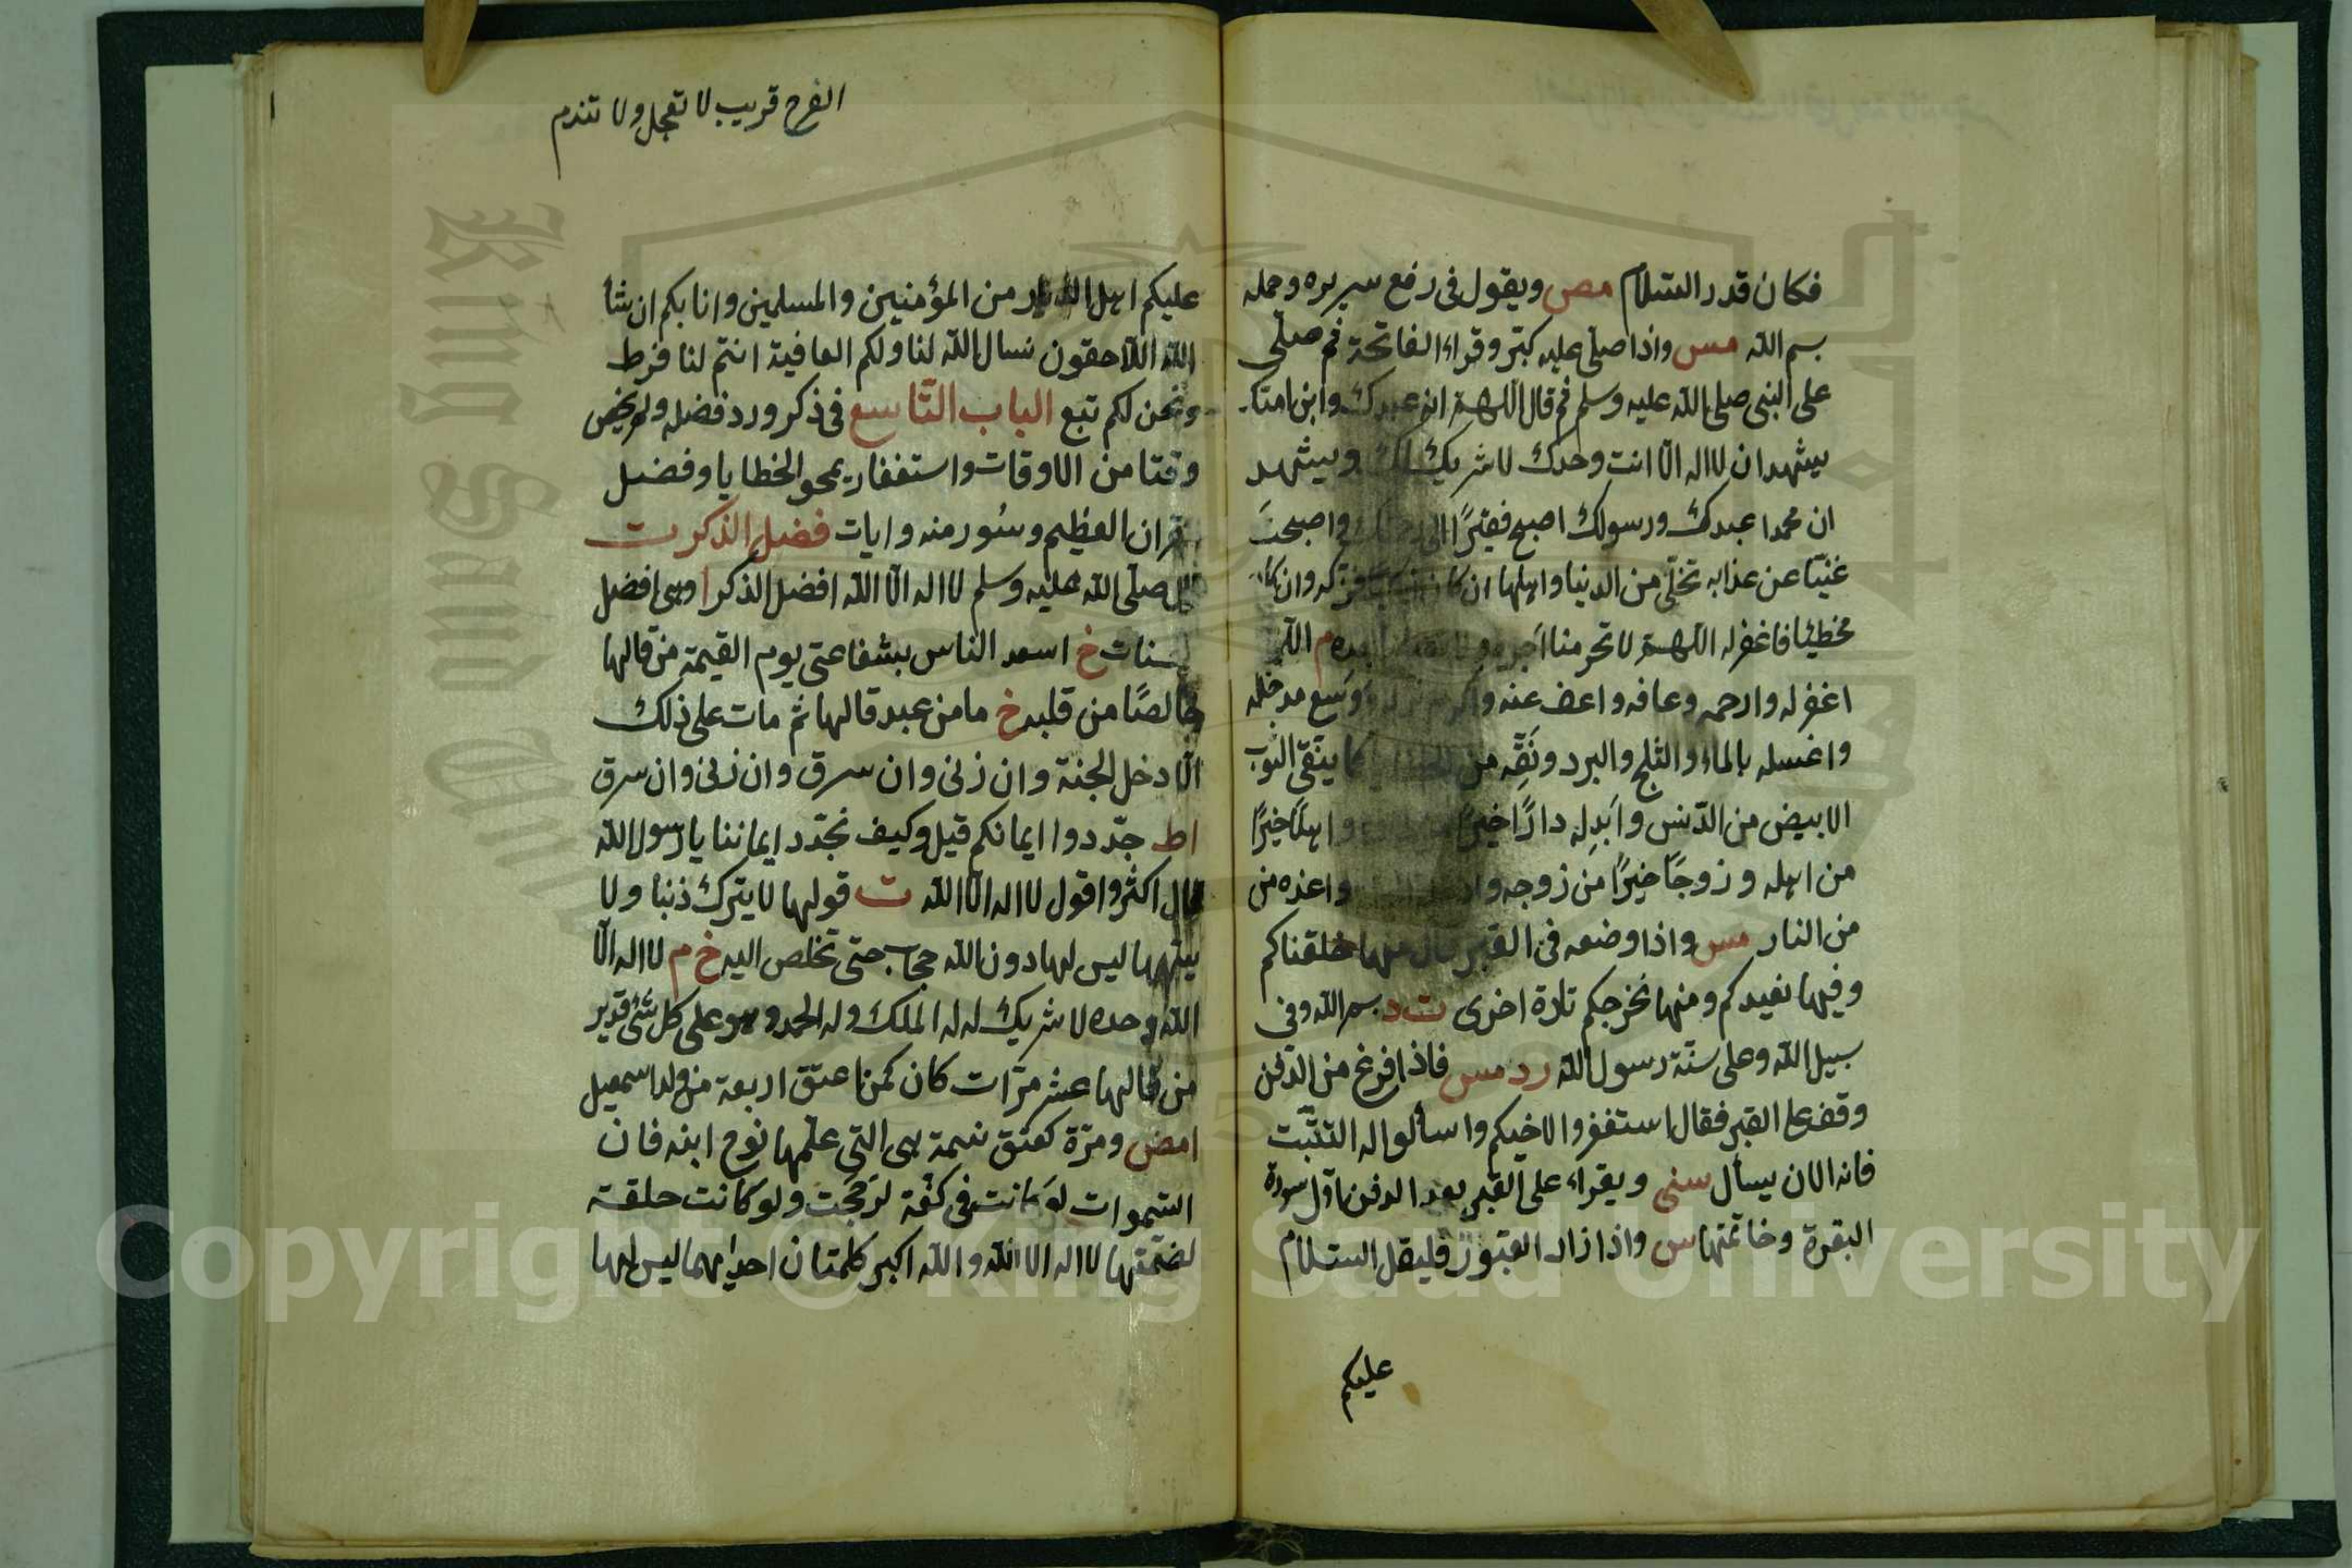 فكان قدر السلام مص ويقول فى رفع سريره وحمله
بسم الله مس واذا صلى عليه كبّر وقراء الفاتحة ثم صلّى
على النبى صلى الله عليه وسلم ثم قال اللهم انه عبدك وابن امتك
يشهد ان لا اله الّا انت وحدك لا شريك لك ويشهد
ان محمدا عبدك ورسولك اصبح فقيرًا الى رحمتك واصبحتَ
غنيّا عن عذابه تخلّى من الدنيا واهلها ان كان فزكه وان كان
مخطئا فاغفر له اللهم لا تحرمنا اجره ولا بعده م اللهم
اغفر له وارحمه وعافه واعف عنه واكرم نزله ووسع مدخله
واغسله بالماء والثلج والبرد ونَقِّه من الخطايا كما ينقّى الثوب
الابيض من الدّنس وابَدِله دارًا خيرًا واهلًا خيرًا
من اهله وزوجًا خيرًا من زوجه واعذه من
من النار مس واذا وضعه فى القبر قال منها خلقناكم
وفيها نعيدكم ومنها نخرجكم تارة اخرى ت د بسم الله وفى
سبيل الله وعلى سنّة رسول الله رد مس فاذا فرغ من الدّفن
وقف على القبر فقال استغفروا لاخيكم واسألوا له التثبّت
فانه الان يسأل سنى ويقراء على القبر بعد الدفن اوّل سورة
البقرة وخاتمتها س واذا زار القبور فليقل السّلام
عليكم
الفرح قريب لا تعجل ولا تندم
عليكم اهل الديار من المؤمنين والمسلمين وانا بكم ان شأ
الله اللاحقون نسال الله لنا ولكم العافية انتم لنا فرط
ونحن لكم تبع الباب التّاسع فى ذكر ورد فضله ولم يخص
وقتا من الاوقات واستغفار يمحو الخطايا وفضل
القران العظيم وسُور منه وايات فضل الذكر ت
قال صلّى الله عليه وسلم لا اله الّا الله افضل الذكر ا وهى افضل
الحسنات خ اسعد الناس بشفاعتى يوم القيمة من قالها
خالصًا من قلبه خ ما من عبد قالها ثم مات على ذلك
الّا دخل الجنة وان زنى وان سرق وان زنى وان سرق
اط جدّدوا ايمانكم قيل وكيف نجدّد ايماننا يا رسول الله
قال اكثروا قول لا اله الّا الله ت قولها لا يترك ذنبا ولا
يشبهها ليس لها دون الله حجاب حتى تخلص اليه خ م لا اله الّا
الله وحده لا شريك له له الملك وله الحمد وهو على كل شئ قدير
من قالها عشر مرّات كان كمن اعتق اربعة من ولد اسمعيل
امض ومرّة كعتق نسمة هى التى علّمها نوح ابنه فان
السّموات لو كانت فى كفّة لرَجحَت ولو كانت حلقة
لضمّتها لا اله الا الله والله اكبر كلمتان احديهما ليس لها
Copyright © King Saud University